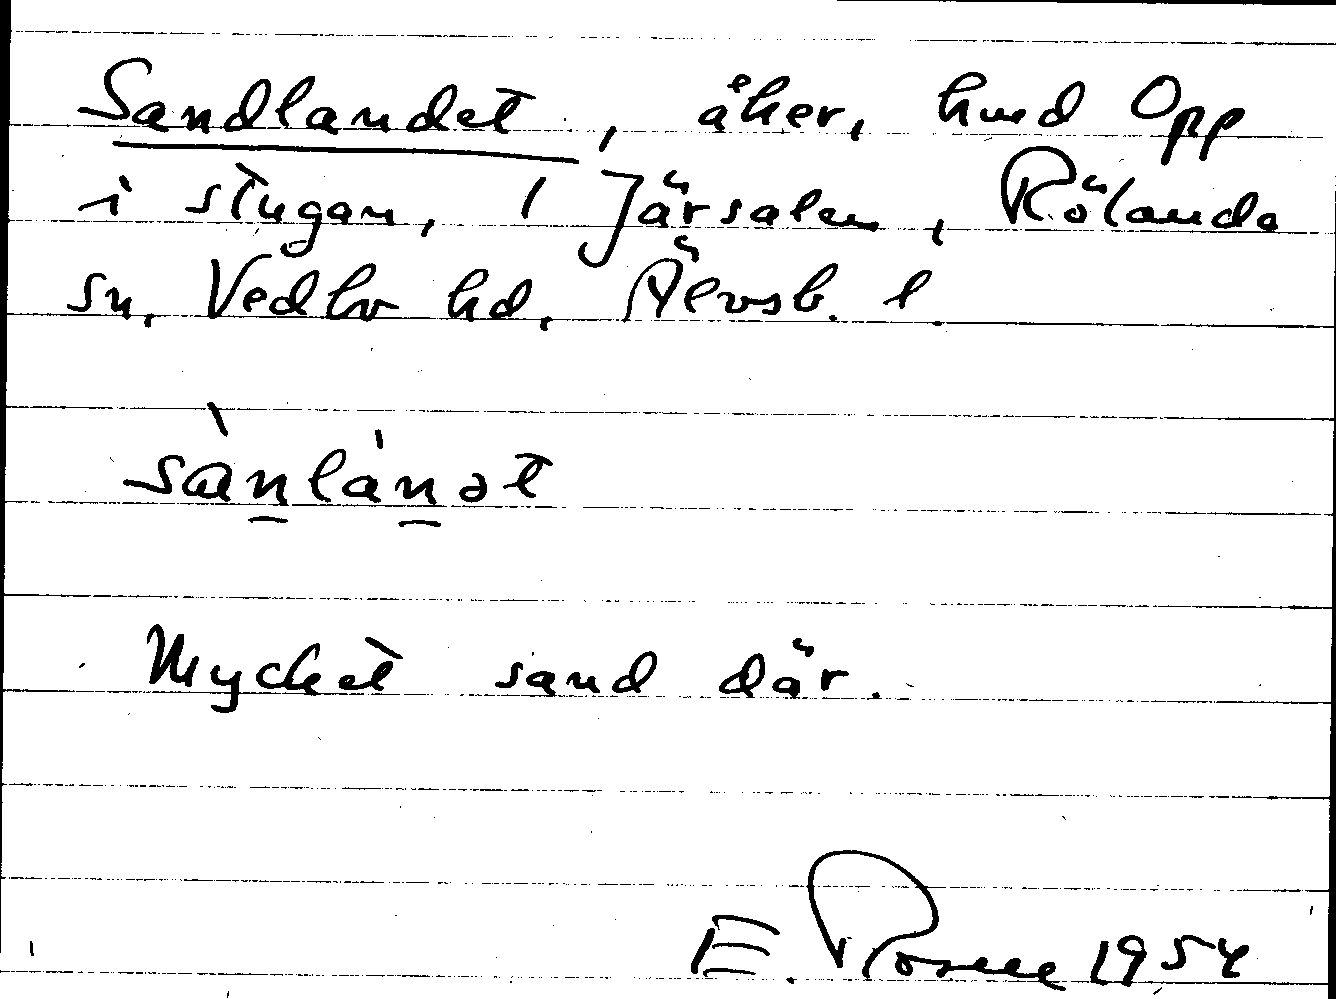 Sandlandet, åker, hmd Opp
i stugan, 1 Järsalen, Rölanda
sn, Vedbo hd, Älvsb. l.
sànlánət
Mycket sand där.
E. Rosell 1954